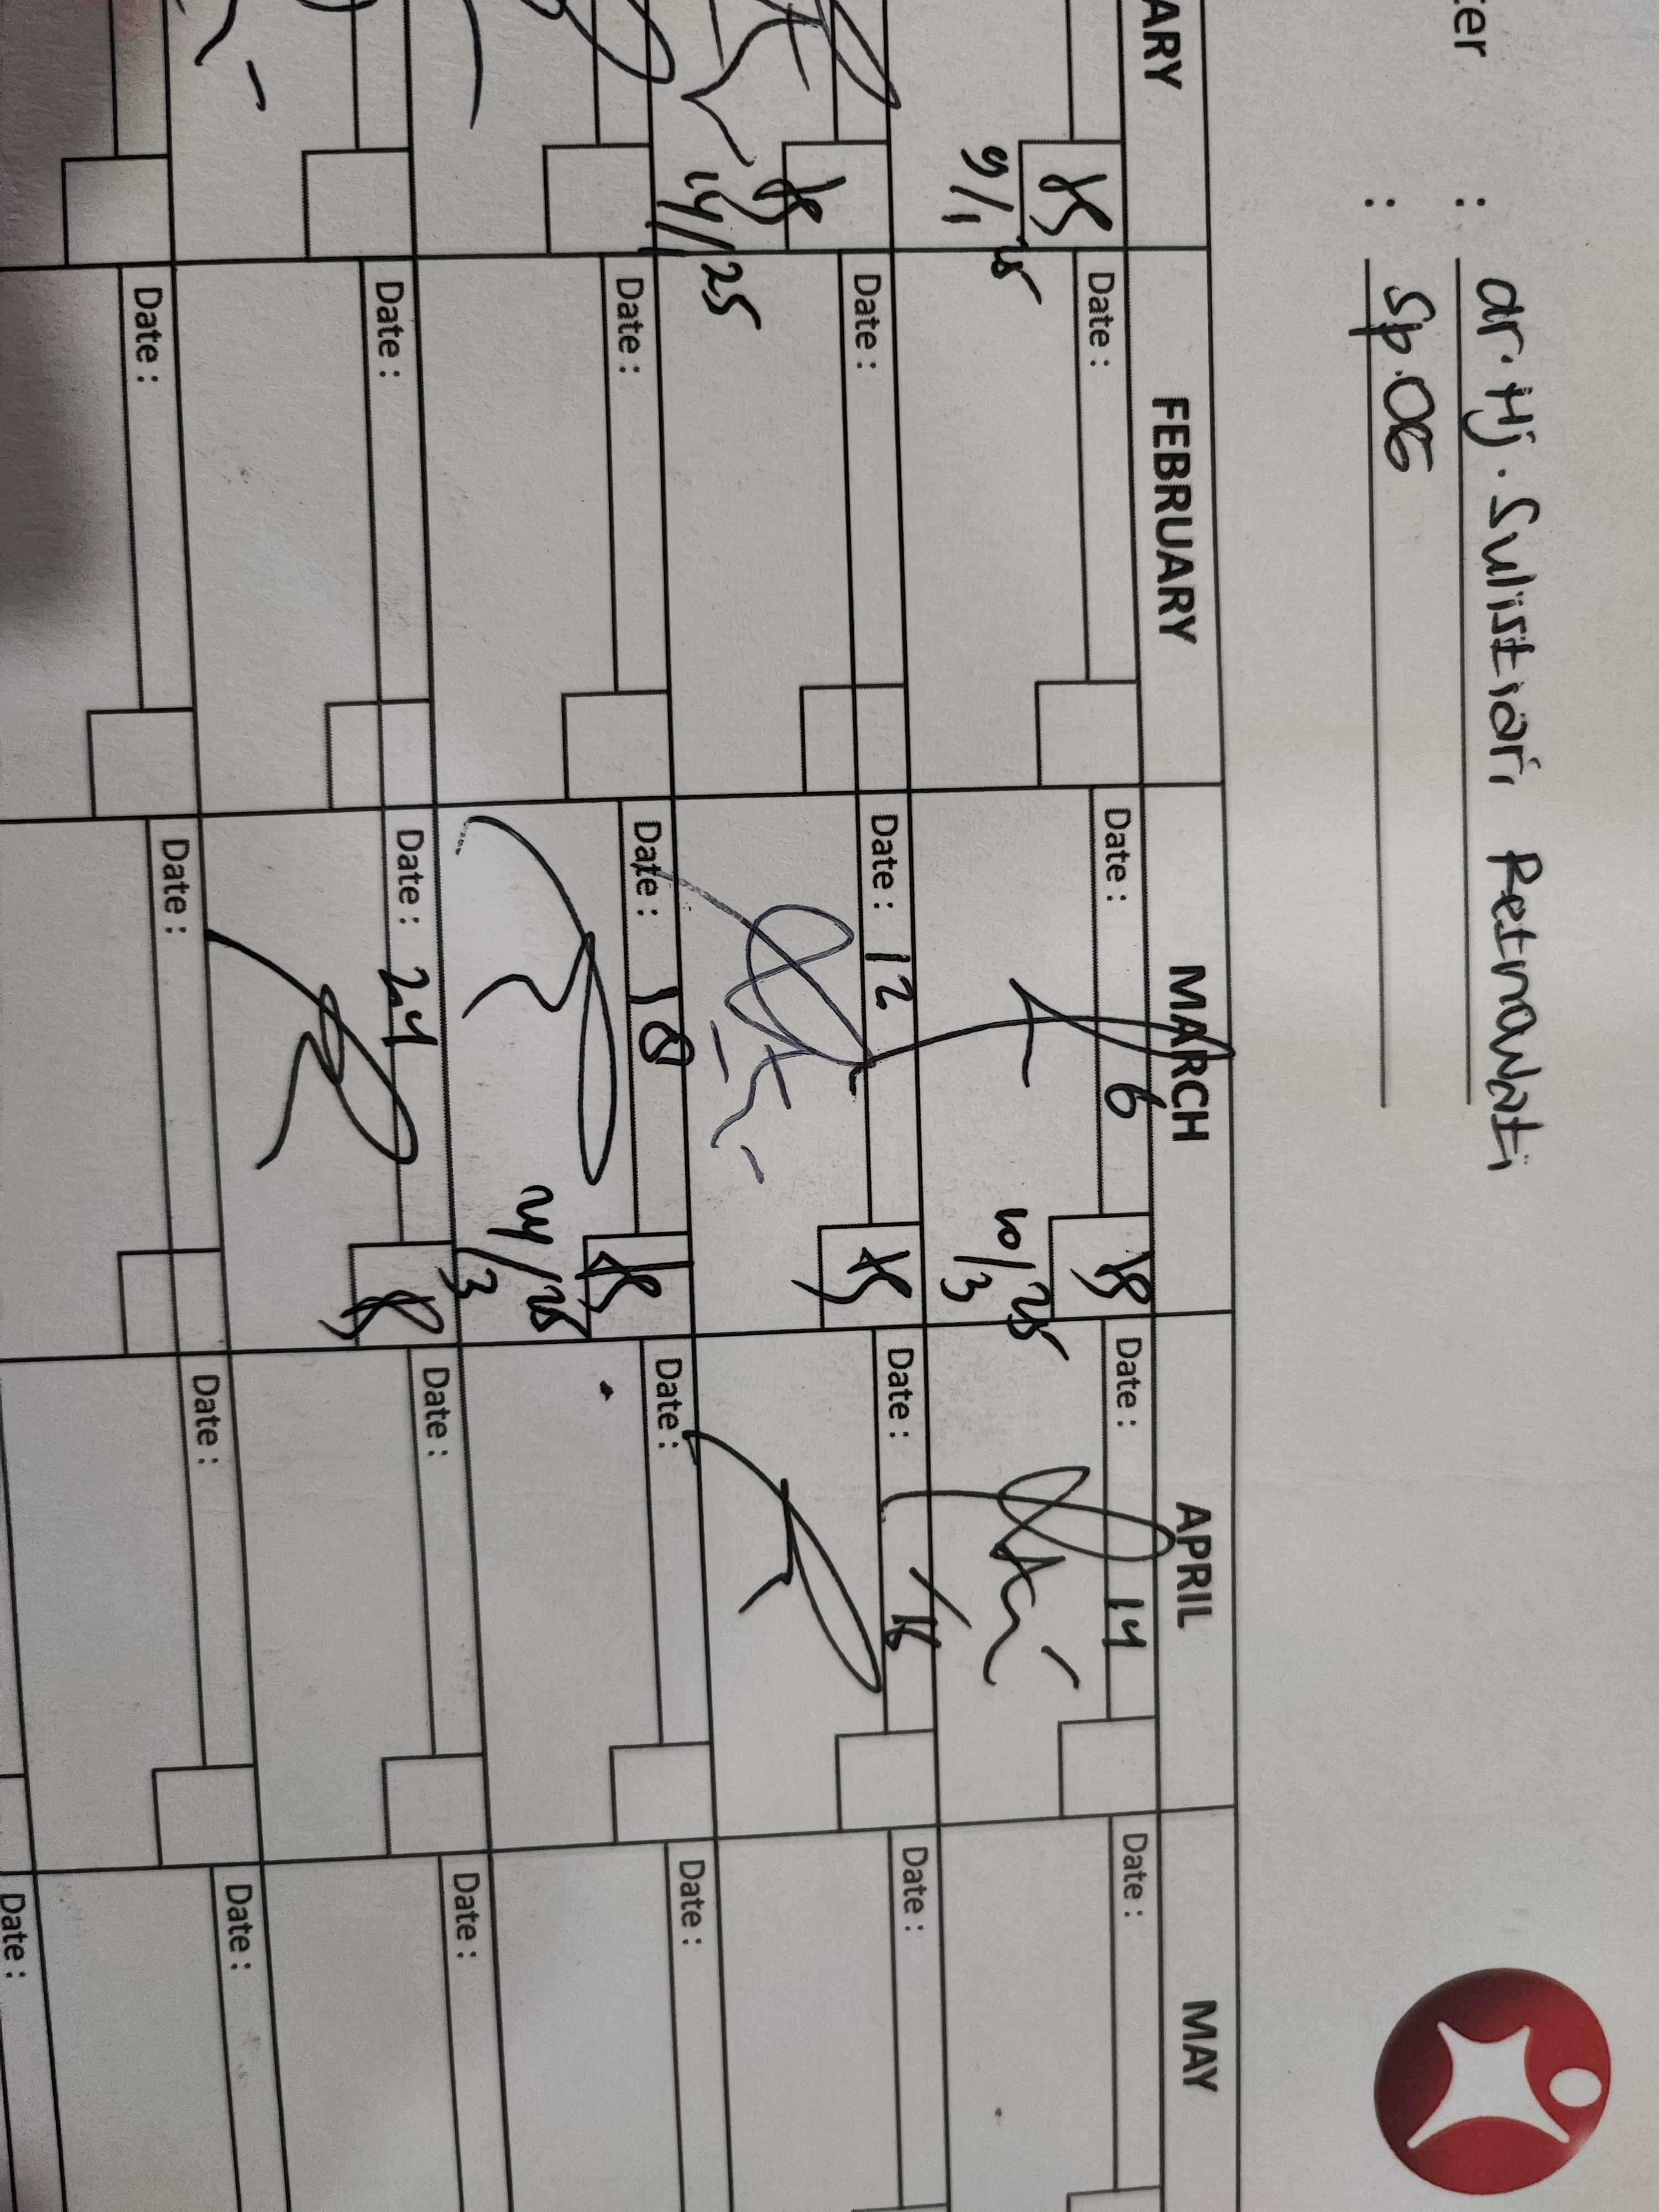 ter : dr. Hj. Sulistiari Retnowati
: Sp.OG
ARY FEBRUARY MARCH APRIL MAY
Date : Date : 6 Date : 14 Date :
9/1 25 10/3 25
Date : Date : 12 Date : 16 Date :
14/25
Date : Date : 18 Date : Date :
24/3 25
Date : Date : 24 Date : Date :
Date : Date : Date : Date :
Date :